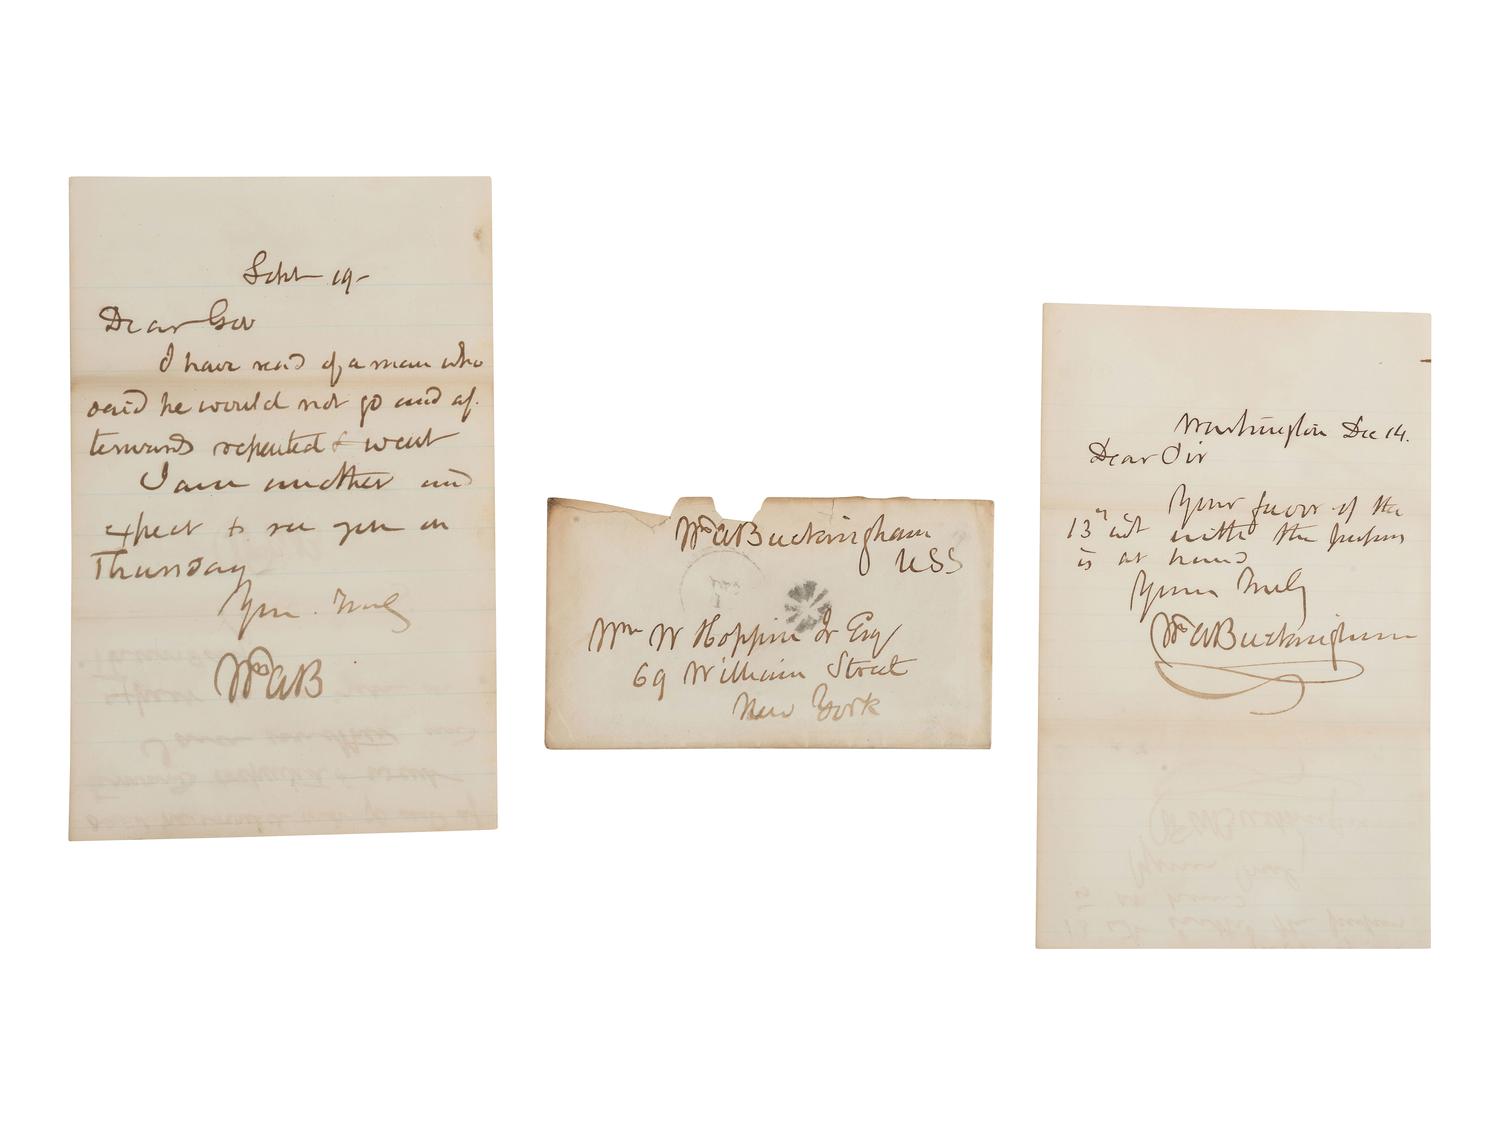 Sept 19-
Dear Gov
I have read of a man who
said he would not go and af-
terwards repented & went
I am another and
expect to see you on
Thursday
Yours Truly
Wm A B
Wm A Buckingham
USS
Wm W Hoppin Jr Esq
69 William Street
New York
Washington Dec 14.
Dear Sir
Your favor of the
13th inst with the papers
is at hand
Yours Truly
Wm A Buckingham